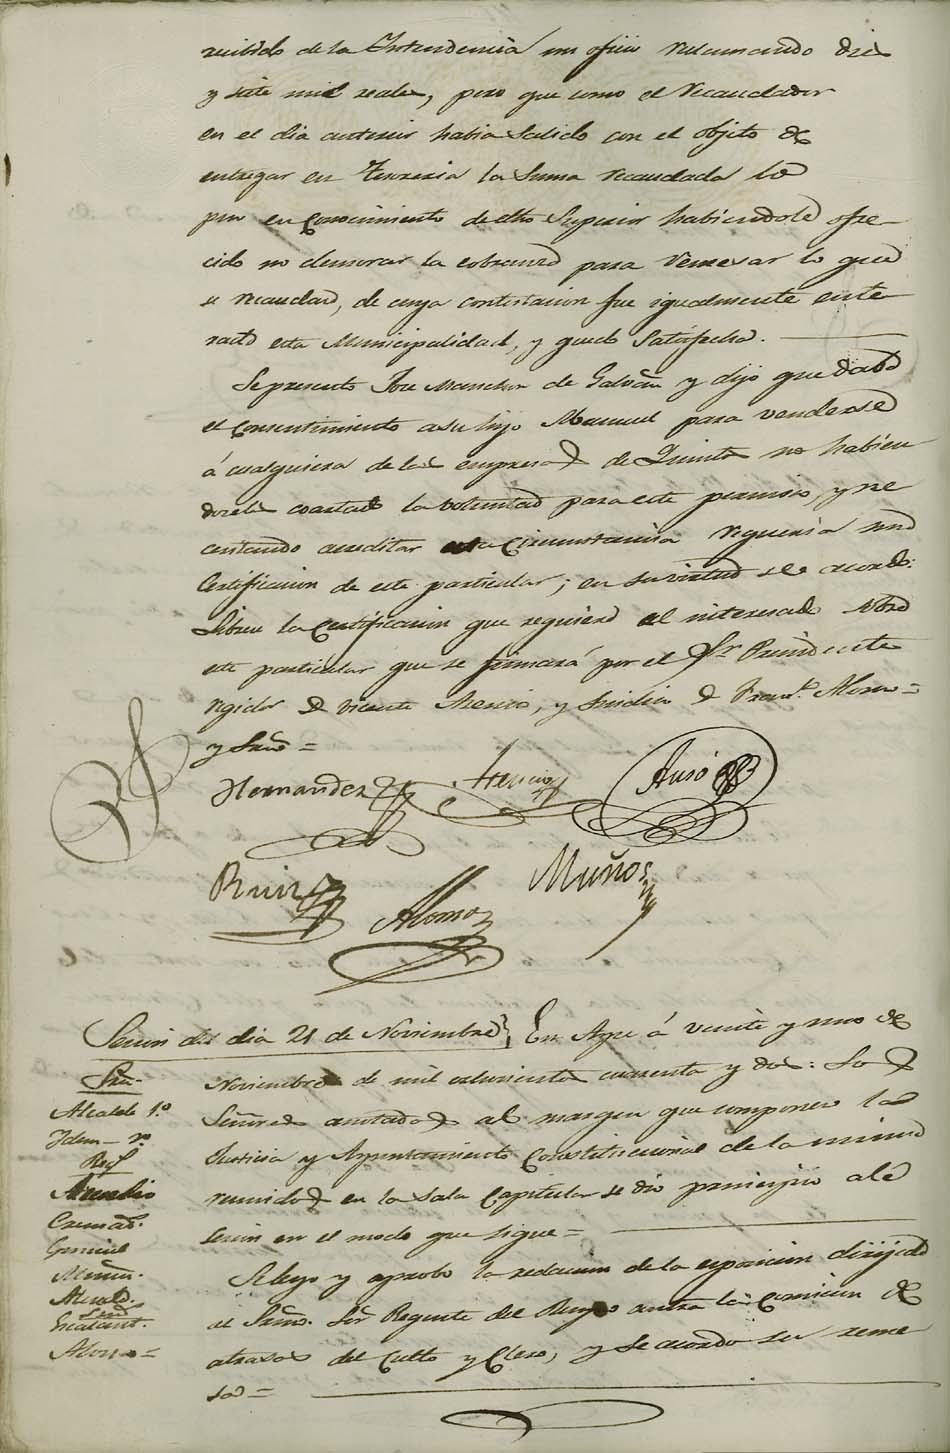 recibido de la Intendencia un oficio reclamando diez
y siete mil reales, pero que como el Recaudador
en el dia anterior habia salido con el objeto de
entregar en Tesoreria la suma recaudada lo
puso en conocimiento de dho Superior habiendole ofre-
cido no demorar la cobranza para remesar lo que
se recaudara, de cuya contestacion fue igualmente ente-
rada esta Municipalidad, y quedo satisfecha.
Se presento Jose de Galvañ y dijo que daba
el consentimiento a su hijo Manuel para venderse
á cualquiera de las empresas de Quinta no habien
dosele coartado la voluntad para este permiso, y ne
cesitando acreditar esta circunstancia requeria una
Certificacion de este particular; en su virtud se acordo:
Librese la certificacion que requiere el interesado sobre
este particular que se firmará por el Sr. Presidente
regidor D Vicente y Sindico D Franco. Alonso =
y Srio =
Hernandez Ausó
Ruiz Alonso Muños
Sesion del dia 21 de Noviembre En Aspe á veinte y uno de
Sres.
Noviembre de mil ochocientos cuarenta y dos: Los
Alcalde 1.º
Señores anotados al margen que componen la
Idem 2.º
Justicia y Ayuntamiento Constitucional de la misma
Regs
reunidos en la Sala Capitular se dio principio a la
Cremads.
sesion en el modo que sigue =
Se leyo y aprobo la redaccion de la esposicion dirijida
al Sermo. Sor Regente del Reyno contra la comision de
Sinds
Escalant.
atrasos del Culto y Clero, y se acordo su reme
Alonso =
sa =